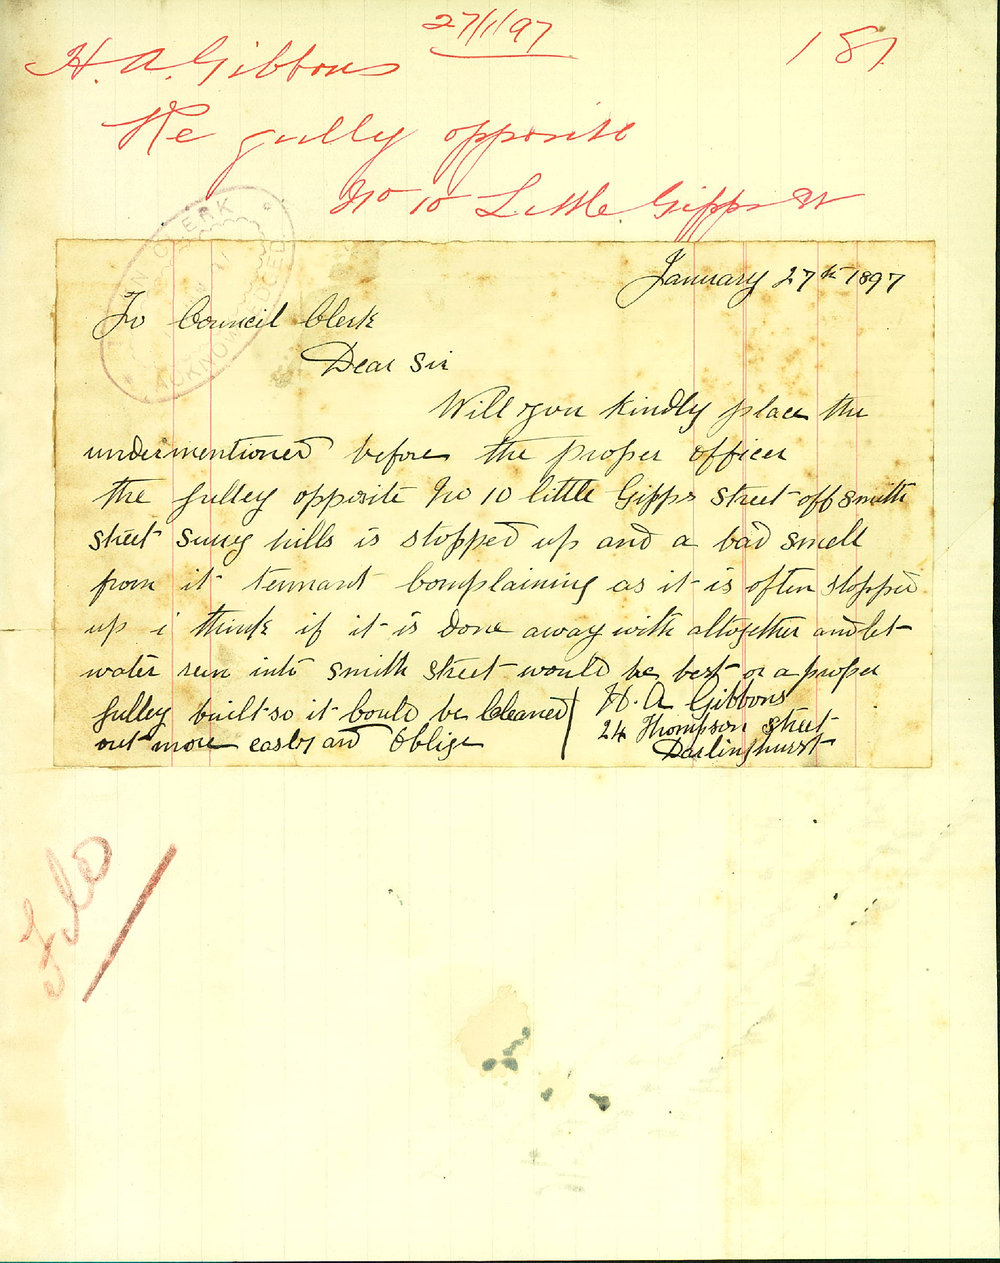 27/1/97
H. A. Gibbons
181
Re gully opposite
No 10 Little Gipps St
TOWN CLERK
ACKNOWLEDGED
January 27th 1897
To Council Clerk
Dear Sir
Will you kindly place the
undermentioned before the proper officer
the gulley opposite No 10 little Gipps street off smith
street surry hills is stopped up and a bad smell
from it tennant Complaining as it is often stopped
up i think if it is done away with altogether and let
water run into smith street would be best or a proper
gulley built so it Could be Cleaned
out more easley and Oblige
H. A Gibbons
24 Thompson street
Darlinghurst